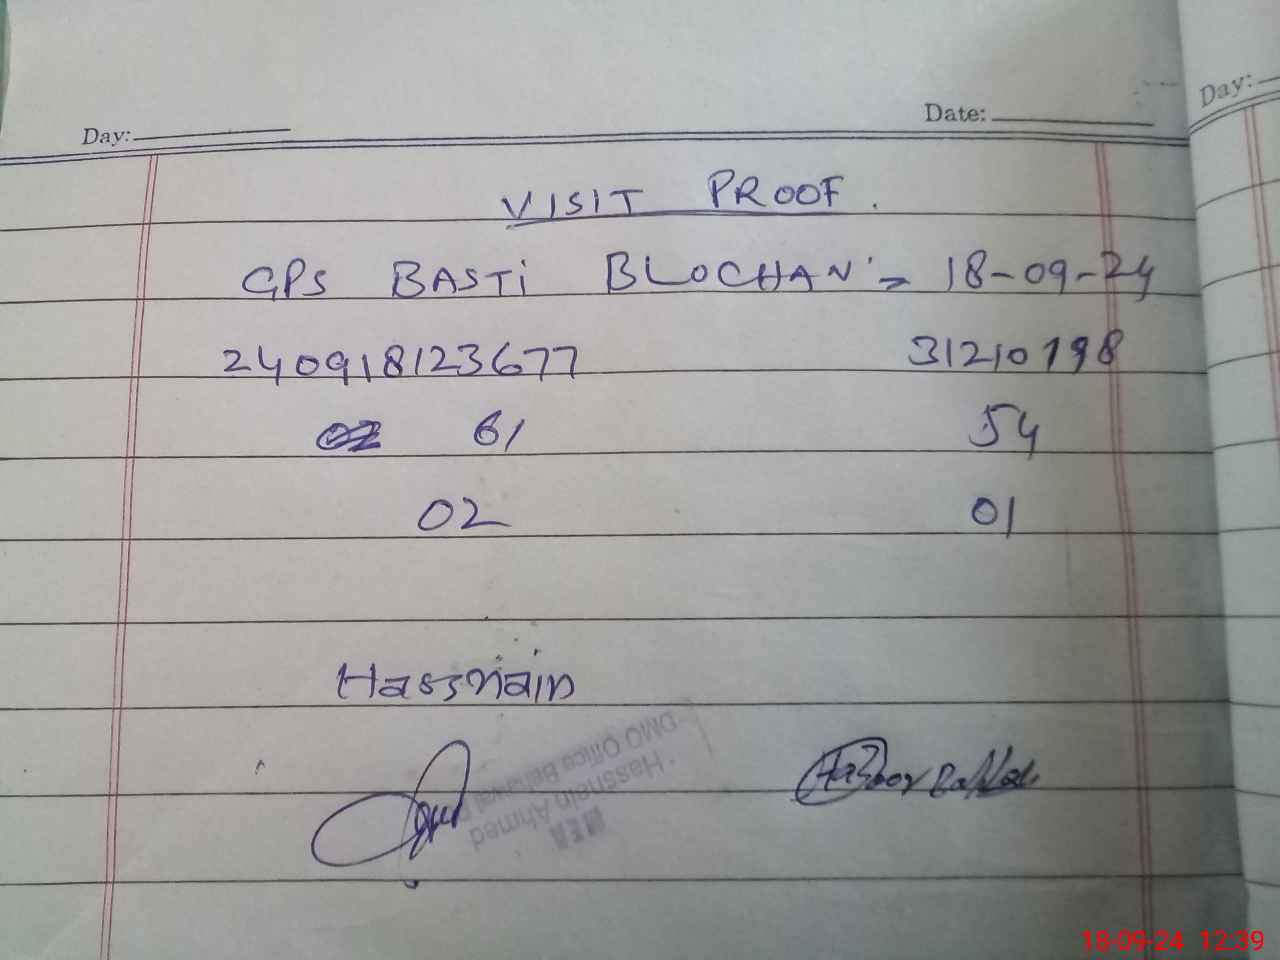 Day:
Date:
Day:
VISIT PROOF.
GPS BASTi BLOCHAN = 18-09-24
240918123677 31210198
02 61 54
02 01
Hassnain
Hassnein Ahmed
DMO Office Bahawal
MEA
18-09-24 12:39